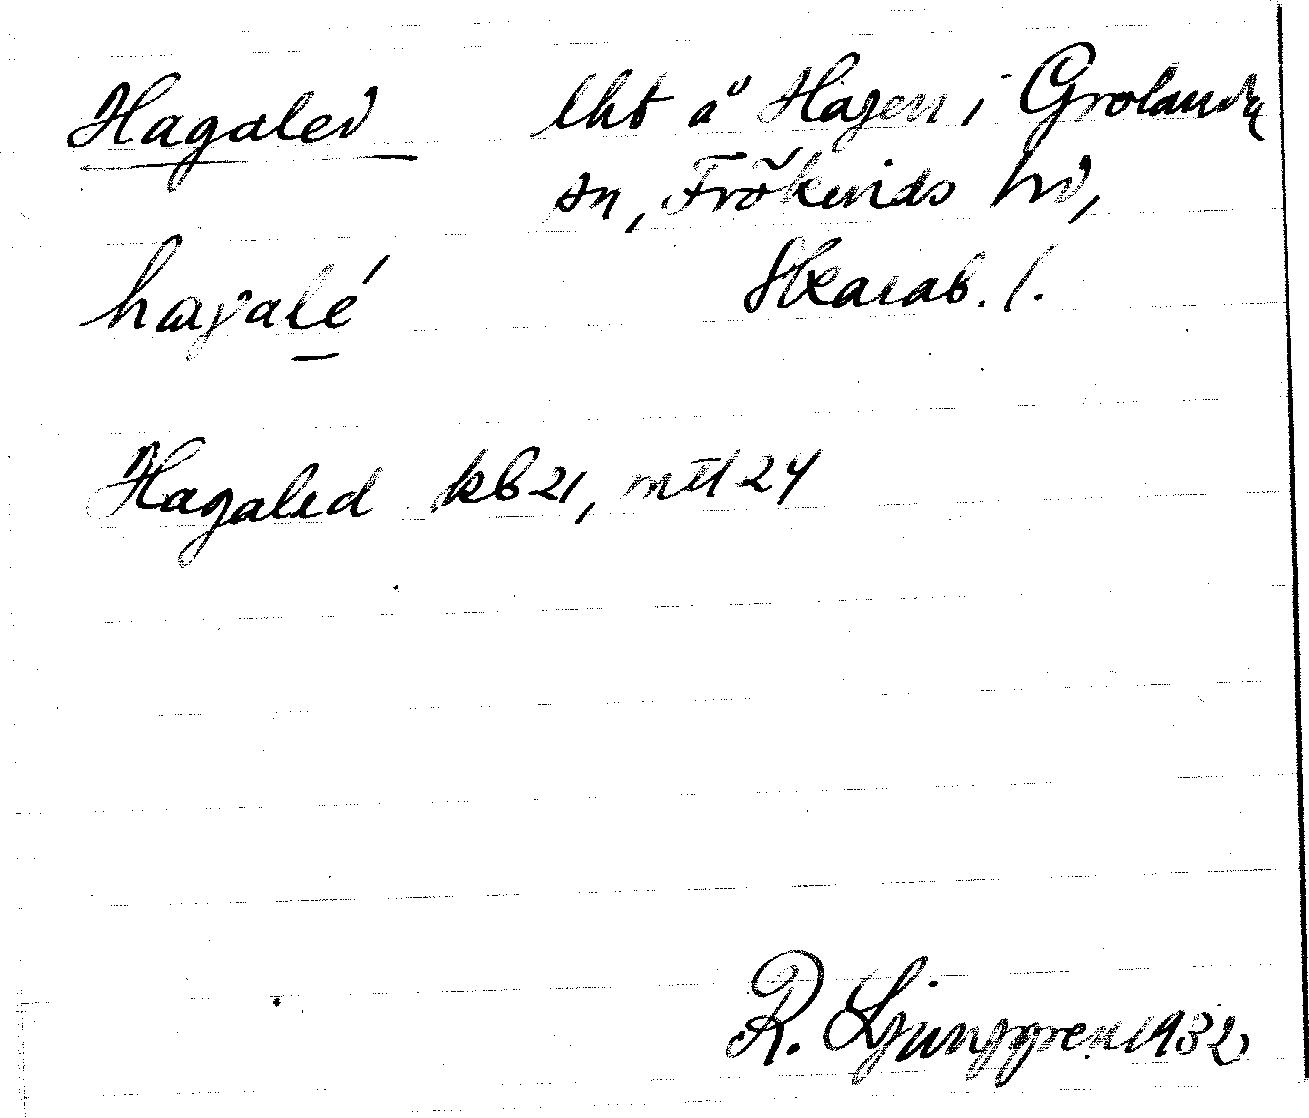 Hagaled lht å Hagen i Grolanda
sn, Frökinds hd,
hagalé Skarab. l.
Hagaled kb 21, mtl 24
R. Ljunggren 1932